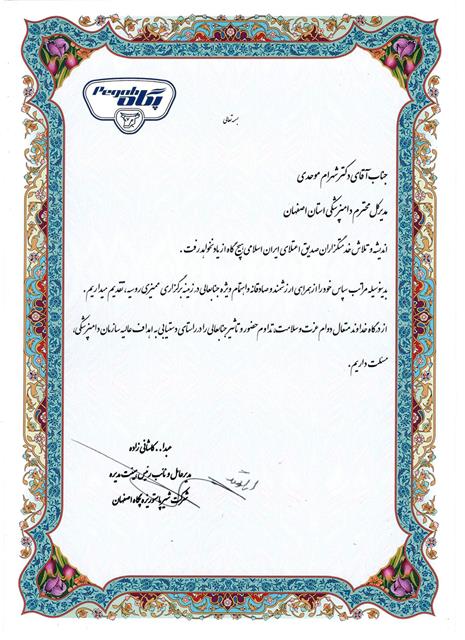 Pegah
پگاه
بسمه تعالی
جناب آقای دکتر شهرام موحدی
مدیرکل محترم دامپزشکی استان اصفهان
اندیشه و تلاش خدمتگزاران صدیق اعتلای ایران اسلامی هیچ گاه از یاد نخواهد رفت .
بدینوسیله مراتب سپاس خود را از همراهی ارزشمند و صادقانه و اهتمام ویژه جنابعالی در زمینه برگزاری ممیزی روسیه، تقدیم میداریم .
از درگاه خداوند متعال دوام عزت و سلامت، تداوم حضور و تاثیر جنابعالی را در راستای دستیابی به اهداف عالیه سازمان دامپزشکی،
مسئلت داریم .
عبدا... کاشانی زاده
مدیرعامل و نائب رئیس هیئت مدیره
شرکت شیر پاستوریزه پگاه اصفهان